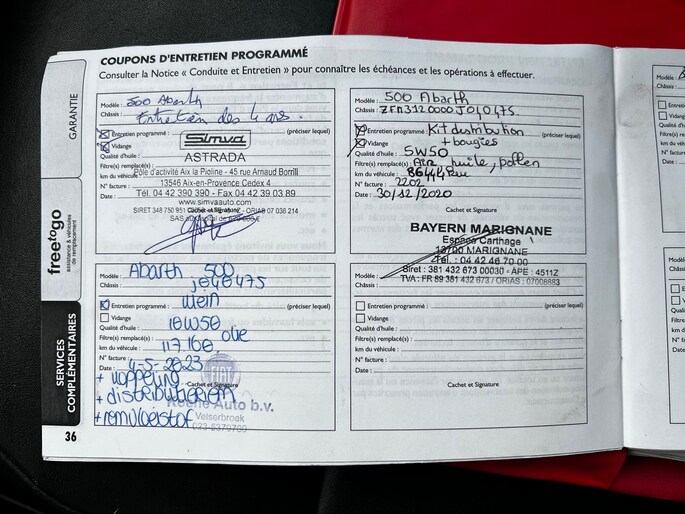 COUPONS D'ENTRETIEN PROGRAMMÉ
Consulter la Notice « Conduite et Entretien » pour connaître les échéances et les opérations à effectuer.
GARANTIE
free to go
assistance & véhicules
de remplacement
SERVICES
COMPLÉMENTAIRES
36
Modèle : 500 Abarth
Châssis : Entretien des 4 ans.
Entretien programmé : (préciser lequel)
Vidange
Simva
Qualité d'huile : ASTRADA
Filtre(s) remplacé(s)
Pôle d'activité Aix la Pioline - 45 rue Arnaud Borrill
km du véhicule
13546 Aix-en-Provence Cedex 4
N° facture :
Tél. 04 42 390 390 - Fax 04 42 39 03 89
Date :
www.simvaauto.com
Cachet et Signature
SIRET 348 750 951 - ORIAS 07 038 214
SAS au capital de
Modèle : 500 Abarth
Châssis : ZFA3120000J040475
Entretien programmé : Kit distribution (préciser lequel)
Vidange + bougies
Qualité d'huile : 5W50
Filtre(s) remplacé(s) : AIR, huile, pollen
km du véhicule :
N° facture : 2202
Date : 30/12/2020
Cachet et Signature
BAYERN MARIGNANE
Espace Carthage
13700 MARIGNANE
Tél. : 04 42 46 70 00
Siret : 381 432 673 00030 - APE : 4511Z
TVA : FR 89 381 432 673 / ORIAS : 07008883
Modèle : Abarth 500
Châssis : J040475
Entretien programmé : klein (préciser lequel)
Vidange
Qualité d'huile : 10W50
Filtre(s) remplacé(s) : olie
km du véhicule : 117.160
N° facture :
Date : 4-5-2023
FIAT
+ koppeling
Cachet et Signature
+ distributieriem
Auto b.v.
Velserbroek
+ remvloeistof
023-5370700
Modèle :
Châssis :
Entretien programmé : (préciser lequel)
Vidange
Qualité d'huile :
Filtre(s) remplacé(s) :
km du véhicule :
N° facture :
Date :
Cachet et Signature